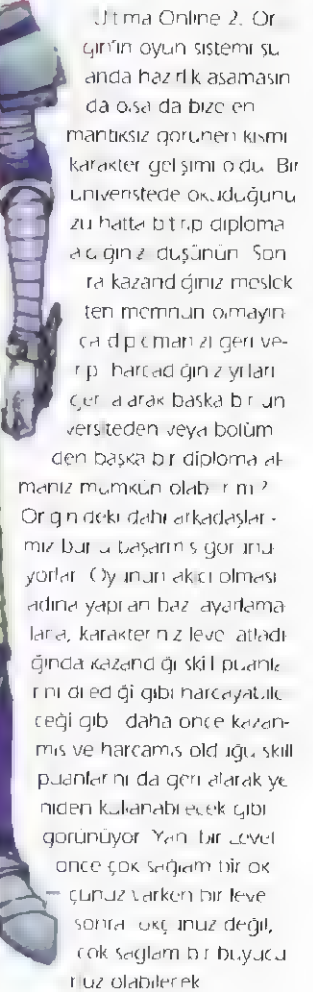 Ultima Online 2. Ori
gin'in oyun sistemi şu
anda hazırlık aşamasın
da olsa da bize en
mantıksız görünen kısmı
karakter gelişimi oldu. Bir
üniveristede okuduğunu
zu hatta bitirip diploma
aldığınızı düşünün. Son
ra kazandığınız meslek
ten memnun olmayın
ca diplomanızı geri ve-
rip harcadığınız yılları
geri alarak başka bir ün
versiteden veya bölüm
den başka bir diploma al
manız mümkün olabilir mi?
Origin deki dahi arkadaşlar-
mız bunu başarmış görünü
yorlar. Oyunun akıcı olması
adına yapılan bazı ayarlama
lara, karakteriniz level atladı
ğında kazandığı skill puanla
rını dilediği gibi harcayabile
ceği gibi daha önce kazan-
mış ve harcamış olduğu skill
puanlarını da geri alarak ye
niden kullanabilecek gibi
görünüyor. Yani bir level
önce çok sağlam bir ok
çunuz varken bir level
sonra okçunuz değil,
çok sağlam bir büyücü
nüz olabilecek